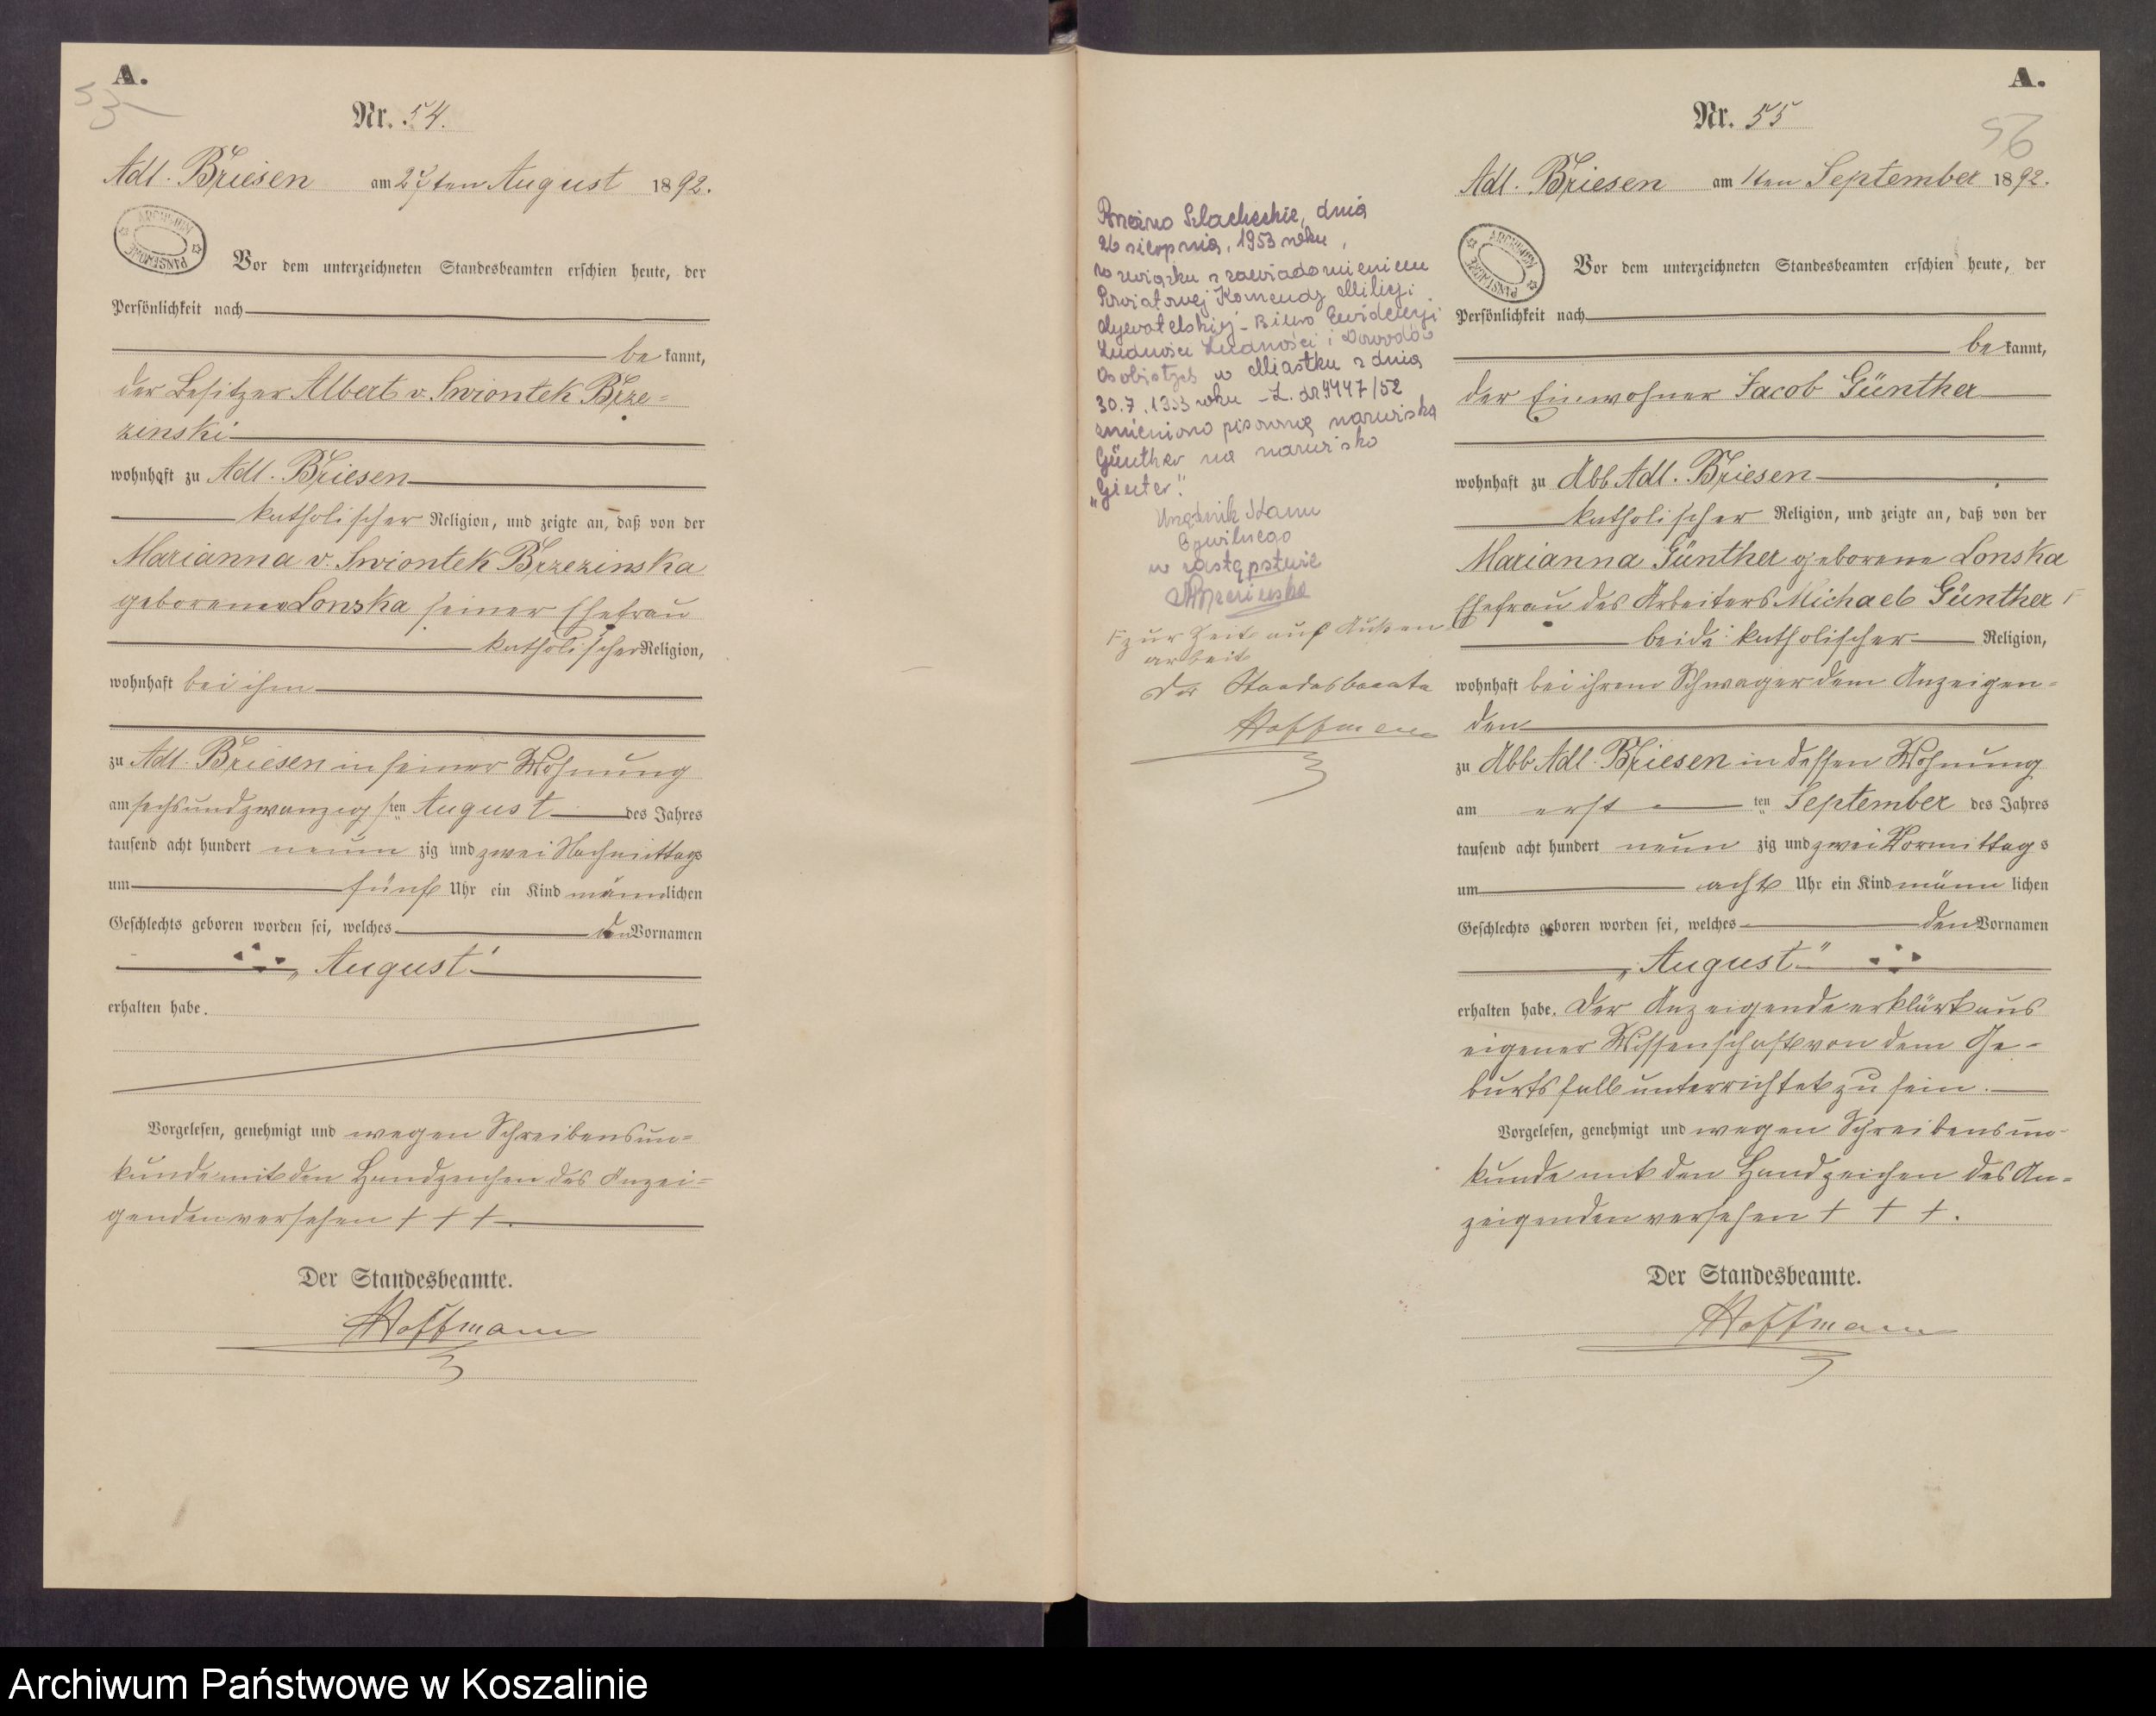 A.
53
Nr. 54.
Adl. Briesen am 27ten August 1892.
ARCHIWUM PAŃSTWOWE
Vor dem unterzeichneten Standesbeamten erschien heute, der
Persönlichkeit nach
be kannt,
der Besitzer Albert v. Swiontek Brze=
zinski
wohnhaft zu Adl. Briesen
katholischer Religion, und zeigte an, daß von der
Marianna v. Swiontek Brzezinska
geborenen Lonska seiner Ehefrau
katholischer Religion,
wohnhaft bei ihm
zu Adl. Briesen in seiner Wohnung
am sechsundzwanzigsten August des Jahres
tausend acht hundert neun zig und zwei Nachmittags
um fünf Uhr ein Kind männlichen
Geschlechts geboren worden sei, welches den Vornamen
„August"
erhalten habe.
Vorgelesen, genehmigt und wegen Schreibensun=
kunde mit den Handzeichen des Anzei=
genden versehen † † †.
Der Standesbeamte.
Hoffmann
A.
56
Nr. 55
Adl. Briesen am 1ten September 1892.
ARCHIWUM PAŃSTWOWE
Vor dem unterzeichneten Standesbeamten erschien heute, der
Persönlichkeit nach
be kannt,
der Einwohner Jacob Günther
wohnhaft zu Abb Adl. Briesen
katholischer Religion, und zeigte an, daß von der
Marianna Günther geborene Lonska
Ehefrau des Arbeiters Michael Günther F
beide katholischer Religion,
wohnhaft bei ihrem Schwager dem Anzeigen=
den
zu Abb Adl. Briesen in dessen Wohnung
am erst ten September des Jahres
tausend acht hundert neun zig und zwei Vormittags
um acht Uhr ein Kind männ lichen
Geschlechts geboren worden sei, welches den Vornamen
„August"
erhalten habe. Der Anzeigende erklärt aus
eigener Wissenschaft von dem Ge=
burtsfall unterrichtet zu sein.
Vorgelesen, genehmigt und wegen Schreibensun=
kunde mit den Handzeichen des An=
zeigenden versehen † † †.
Der Standesbeamte.
Hoffmann
Brzeźno Szlacheckie, dnia
26 sierpnia, 1953 roku,
w związku z zawiadomieniem
Powiatowej Komendy Milicji
Obywatelskiej - Biuro Ewidencji
Ludności i Dowodów
Osobistych w Miastku z dnia
30.7.1953 roku - L. dz 4447/52
zmieniono pisownię nazwiska
Günther na nazwisko
„Ginter".
Urzędnik Stanu
Cywilnego
w zastępstwie
F zur Zeit auf Außen
arbeit
Der Standesbeamte
Hoffmann
Archiwum Państwowe w Koszalinie